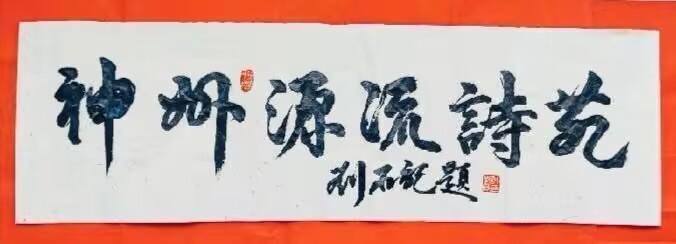 神州源流詩苑
刘石記題